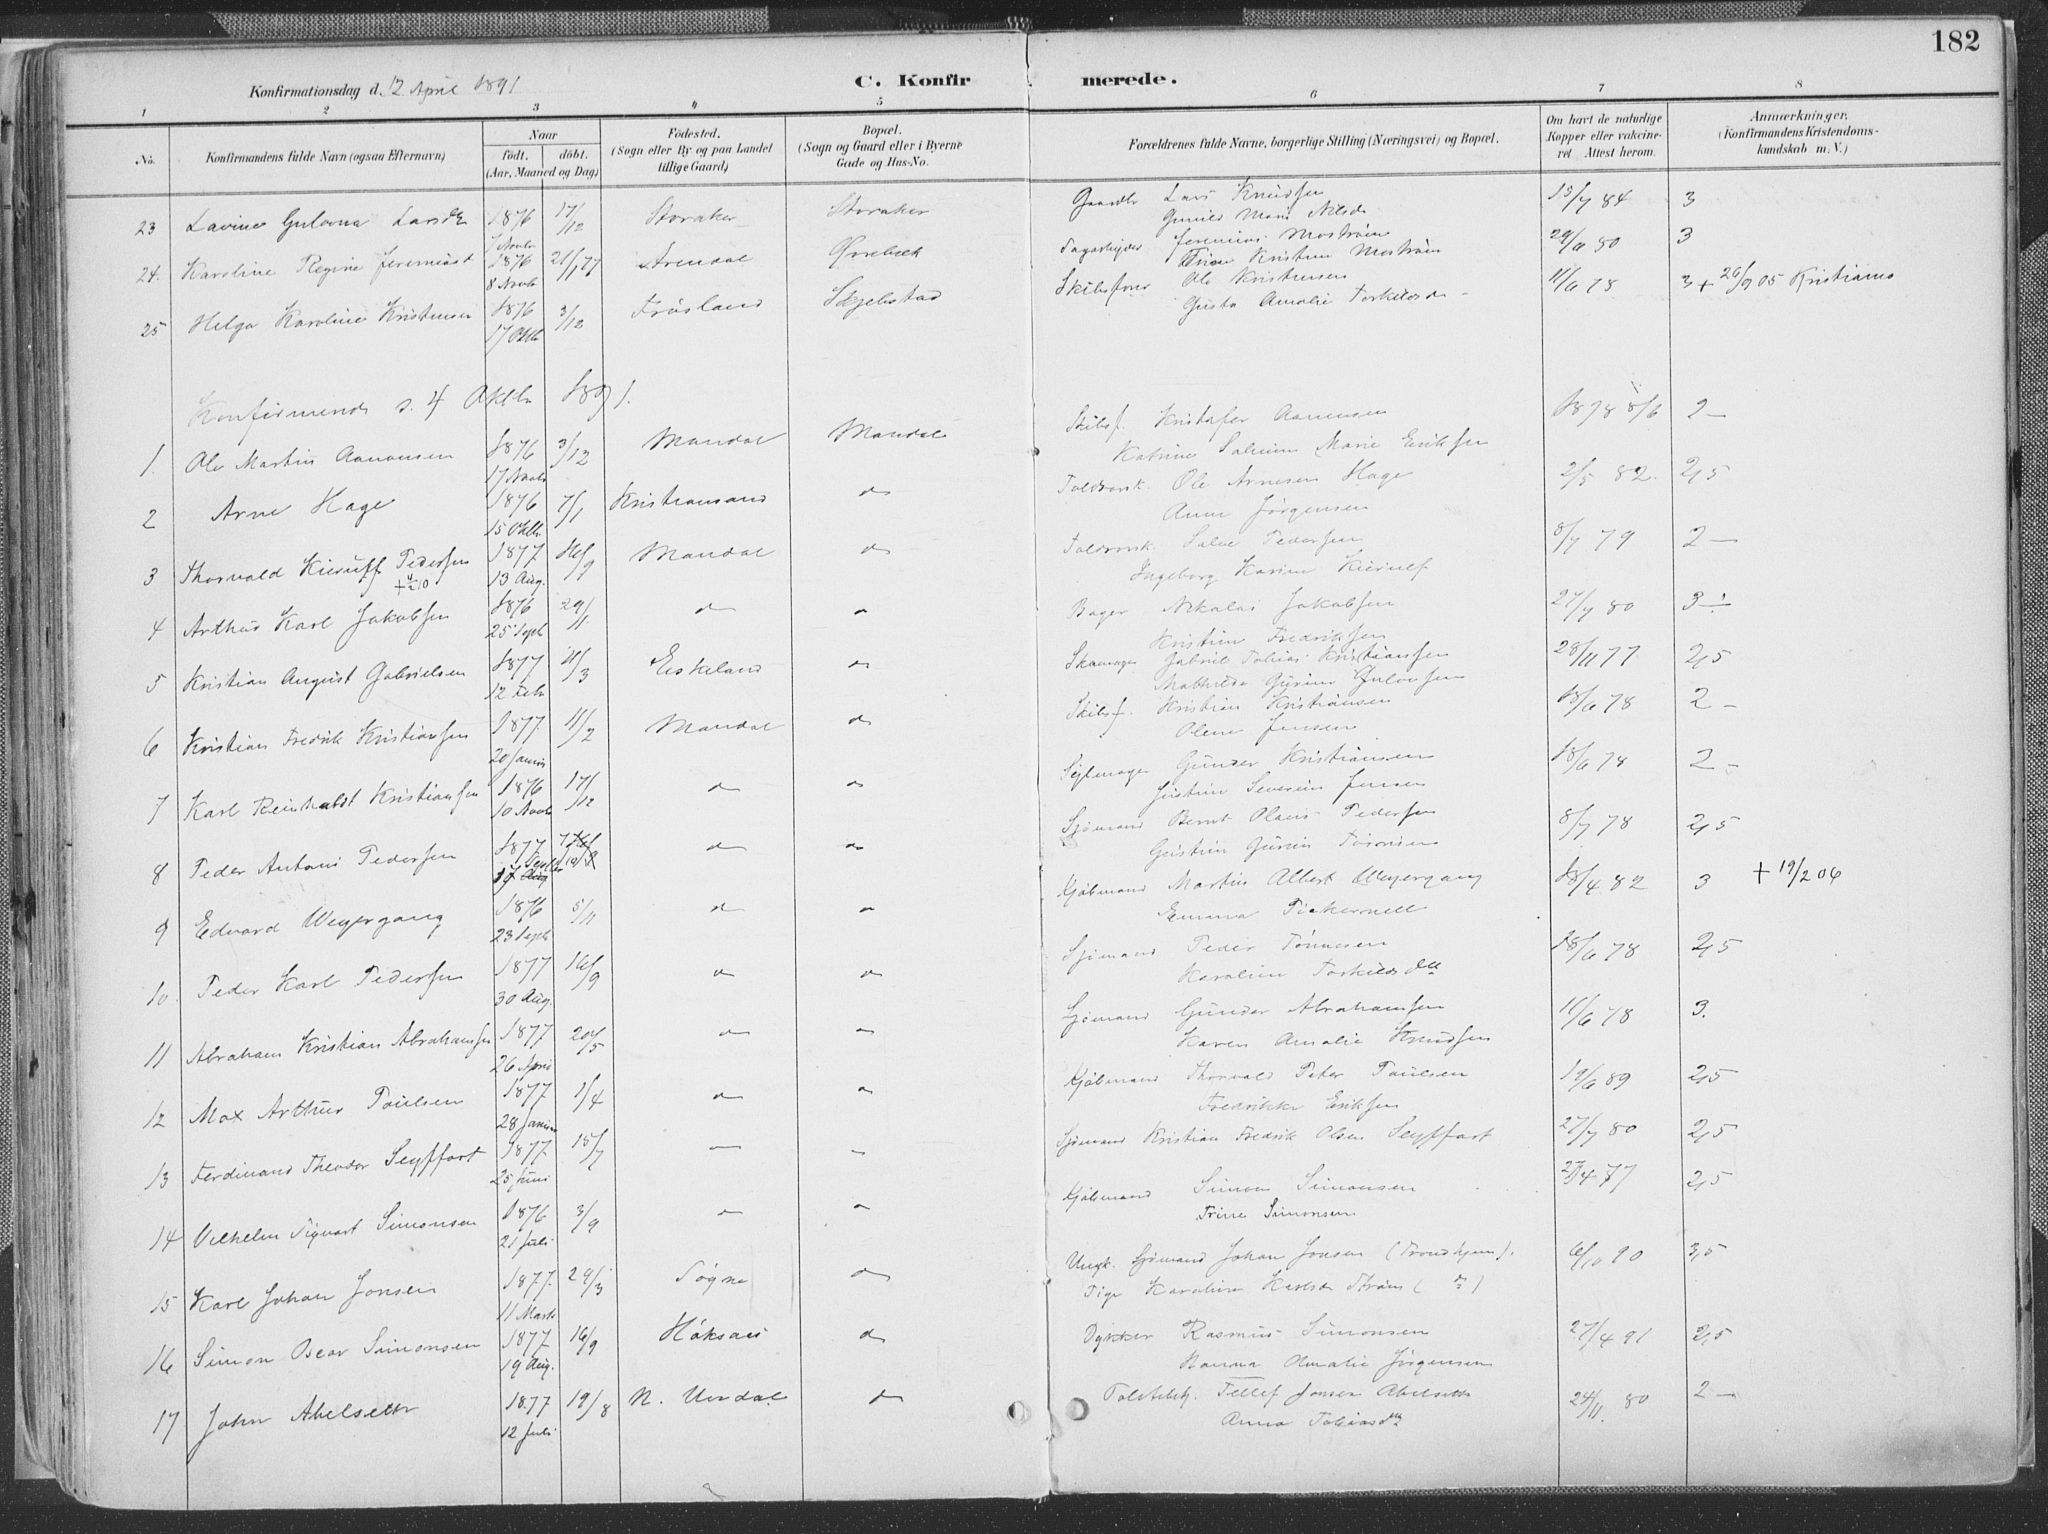 182
Konfirmationsdag d. 12 April 1891
C. Konfirmerede.
1 2 3 4 5 6 7 8
No. Konfirmandens fulde Navn (ogsaa Efternavn) Naar født. døbt. (Aar, Maaned og Dag) Födested. (Sogn eller By og paa Landet tillige Gaard) Bopæl. (Sogn og Gaard eller i Byerne Gade og Hus-No. Forældrenes fulde Navne, borgerlige Stilling (Næringsvei) og Bopæl. Om havt de naturlige Kopper eller vakcineret. Attest herom. Anmærkninger, (Konfirmandens Kristendomskundskab m. V.)
23 Lavine Gulovna Larsdtr 1876 7 Novbr 17/12 Storaker Storaker Gaardbr Lars Knudsen 84 3
Gunild Marie Nilsd
24. Karoline Regine Jeremiasd 1876 8 Novbr 21/1 77 Arendal Jeremias Moström 29/11 80 3
Trine Kristine Moström
25 Helga Karoline Kristensen 1876 17 Oktb 3/12 Frösland Skjebstad Skibsfører Ole Kristensen 11/6 78 3 + 26/9 05 Kristiania
Gusta Amalie Torkildsd
Konfirmerede d. 4 Oktbr 1891.
1. Ole Martin Aanensen 1876 17 Novbr 3/12 Mandal Mandal Skibsf. Kristofer Aanensen 1878 8/6 2 –
Katrine Marie Eriksen
2 Arne Hage 1876 15 Oktb. 7/1 Kristiansand do Toldrorsk. Ole Arnesen Hage 2/5 82. 2,5
Anne Jörgensen
3 Thorvald Kierulff Pedersen 1877 13 Aug. 16/9 Mandal do Toldrorsk. Salve Pedersen 8/7 79 2 –
Ingeborg Karine Kierulf
4 Arthur Karl Jakobsen 1876 25 Septb 29/1 do do Bager Nikolai Jakobsen 27/7 80 3
Kristine Fredriksen
5 Kristian August Gabrielsen 1877 12 Feb 11/3 Eskeland do Skomager Gabriel Tobias Kristiansen 28/11 77 2,5
Mathilde Gurine
6 Kristian Fredrik Kristiansen 1877. 20 Januar 11/2 Mandal do Skibsf. Kristian Kristiansen 18/6 78 2 –
Olene Jensen
7 Karl Reinholdt Kristiansen 1876 10 Novb 17/12 do do Sejlmager Gunder Kristiansen 18/6 78 2 –
Jistine Severine Jensen
8 Peder Antoni Pedersen 1877 do do Sjömand Bernt Olaus Pedersen 8/7 78 2,5
Gustine Gurine
9 Edvard Weyergang 1876 23 Septb 5/11 do do Kjöbmand Martin Albert Weyergang 18/4 82 3 + 19/2 06
Emma Pickernell
10. Peder Karl Pedersen 1877 30 Aug. 16/9 do do Sjömand Peder Tönnesen 18/6 78 2,5
Karoline Torkildsdtr
11 Abraham Kristian Abrahamsen 1877 26 April 20/5 do do Sjömand Gunder Abrahamsen 11/6 78 3.
Karen Amalie Knudsen
12 Max Arthur Paulsen 1877 28 Januar 1/4 do do Kjöbmand Thorvald Peter Paulsen 19/6 89 2,5
Fredrikke Eriksen
13 Ferdinand Theodor Seyffart 1877. 25 Juni 15/7 – – Sjömand Kristian Fredrik Olsen Seyffart 27/7 80 2,5
14 Vilhelm Sigvart Simonsen 1876 21 Juli 3/9 do do Kjöbmand Simon Simonsen 27/4 77 2,5
Trine Simonsen
15 Karl Johan Jonsen 1877. 11 Marts 29/3 Søgne do Ungk. Sjömand Johan Jonsen (Trondhjem). 6/10 90 3,5
Pige Karoline Karlsd Ström (do)
16 Simon Oscar Simonsen 1877 19 Aug. 16/9 do Dykker Rasmus Simonsen 27/4 91 2,5
Hanna Amalie Jörgensen
17 John Abelseth 1877 12 Juli 19/8 N. Undal do Tellef Jonsen Abelseth 24/11. 80 2 –
Anna Tobiasdtr